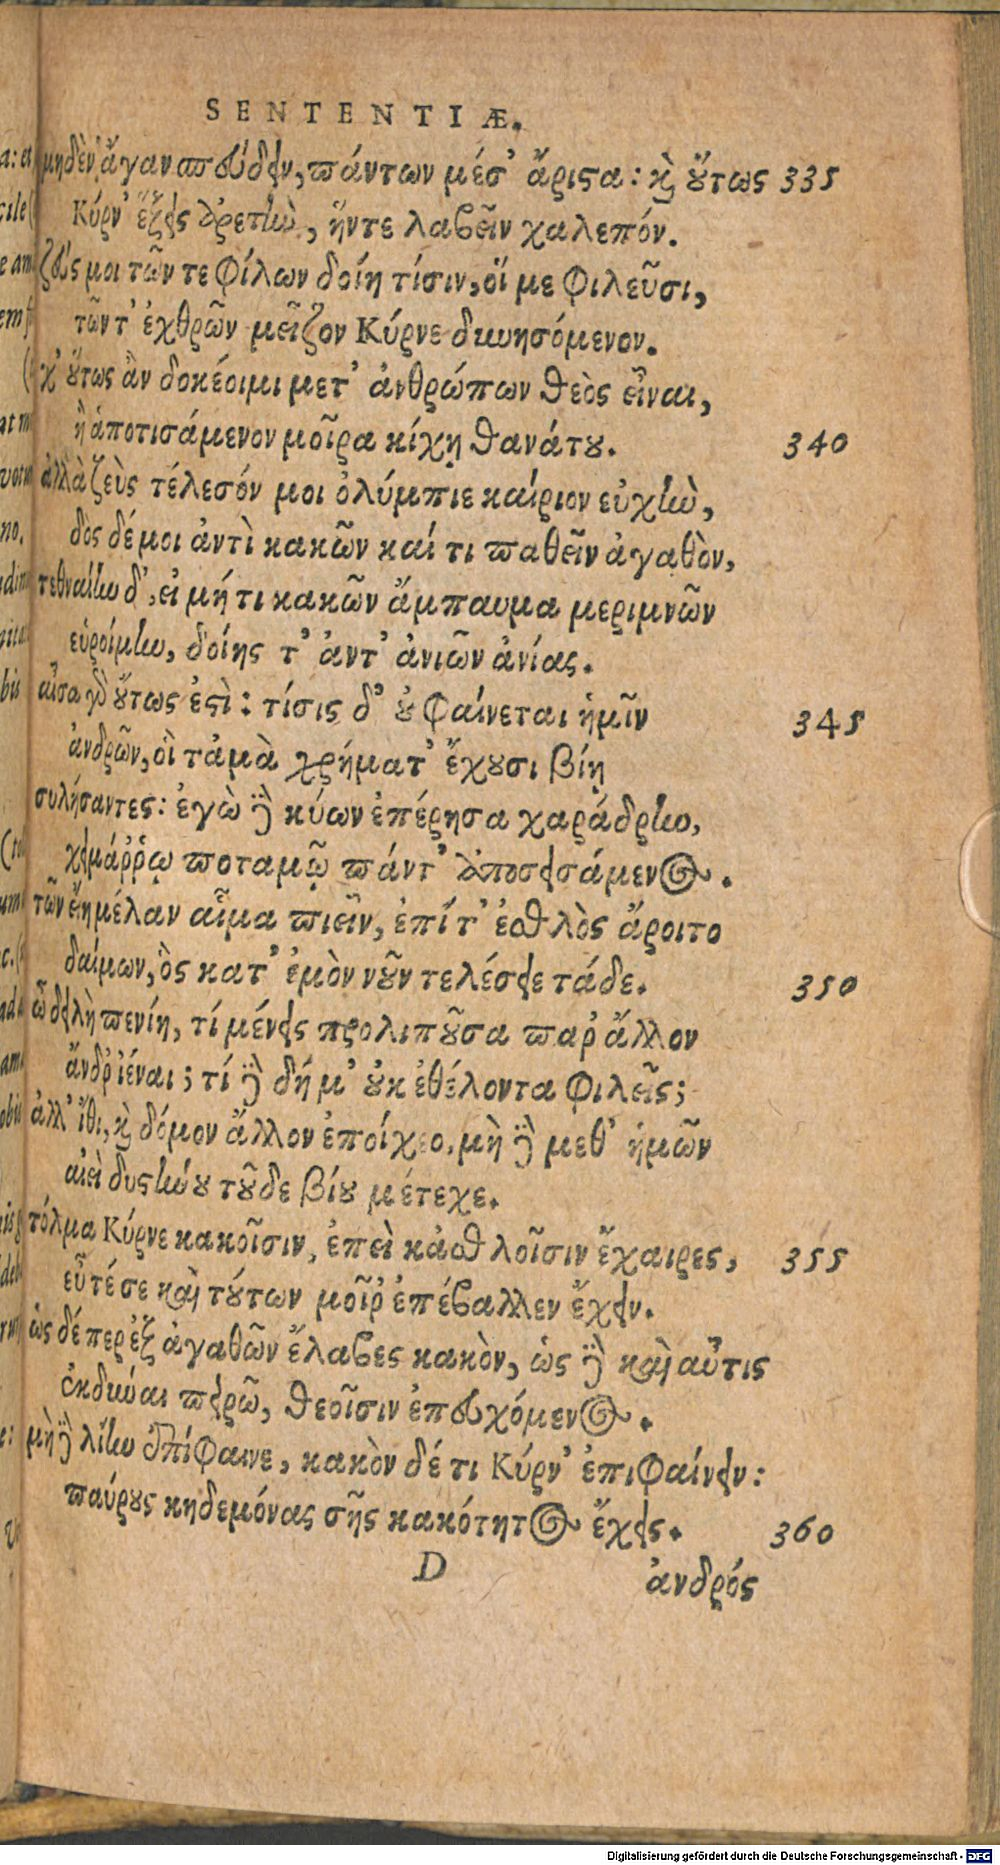 SENTENTIÆ.
μηδὲν ἄγαν σπεύδειν, πάντων μέσ' ἄριστα: καὶ οὕτως 335
Κύρν' ἕξεις ἀρετὴν, ἥντε λαβεῖν χαλεπόν.
ζεύς μοι τῶν τε φίλων δοίη τίσιν, οἵ με φιλεῦσι,
τῶν τ' ἐχθρῶν μεῖζον Κύρνε δυνησόμενον.
χ' οὕτως ἂν δοκέοιμι μετ' ἀνθρώπων θεὸς εἶναι,
ἢ ἀποτισάμενον μοῖρα κίχῃ θανάτου. 340
ἀλλὰ ζεὺς τέλεσόν μοι ὀλύμπιε καίριον εὐχὴν,
δὸς δέ μοι ἀντὶ κακῶν καί τι παθεῖν ἀγαθὸν,
τεθναίην δ', εἰ μή τι κακῶν ἄμπαυμα μεριμνῶν
εὑροίμην, δοίης τ' ἀντ' ἀνιῶν ἀνίας.
αἶσα γὰρ οὕτως ἐστὶ: τίσις δ' οὐ φαίνεται ἡμῖν 345
ἀνδρῶν, οἳ τἀμὰ χρήματ' ἔχουσι βίῃ
συλήσαντες: ἐγὼ δὲ κύων ἐπέρησα χαράδρην,
χειμάῤῥῳ ποταμῷ πάντ' ἀποσεισάμενος.
τῶν εἴη μέλαν αἷμα πιεῖν, ἐπί τ' ἐσθλὸς ἄροιτο
δαίμων, ὃς κατ' ἐμὸν νοῦν τελέσειε τάδε. 350
ὦ δειλὴ πενίη, τί μένεις προλιποῦσα παρ' ἄλλον
ἄνδρ' ἰέναι; τί δὲ δή μ' οὐκ ἐθέλοντα φιλεῖς;
ἀλλ' ἴθι, καὶ δόμον ἄλλον ἐποίχεο, μὴ δὲ μεθ' ἡμῶν
αἰεὶ δυστήνου τοῦδε βίου μέτεχε.
τόλμα Κύρνε κακοῖσιν, ἐπεὶ κἀσθλοῖσιν ἔχαιρες, 355
εὖτέ σε καὶ τούτων μοῖρ' ἐπέβαλλεν ἔχειν.
ὡς δέ περ ἐξ ἀγαθῶν ἔλαβες κακὸν, ὡς δὲ καὶ αὖτις
ἐκδῦναι πειρῶ, θεοῖσιν ἐπευχόμενος.
μὴ δὲ λίην ἐπίφαινε, κακὸν δέ τι Κύρν' ἐπιφαίνειν:
παύρους κηδεμόνας σῆς κακότητος ἔχεις. 360
D ἀνδρός
Digitalisierung gefördert durch die Deutsche Forschungsgemeinschaft - DFG